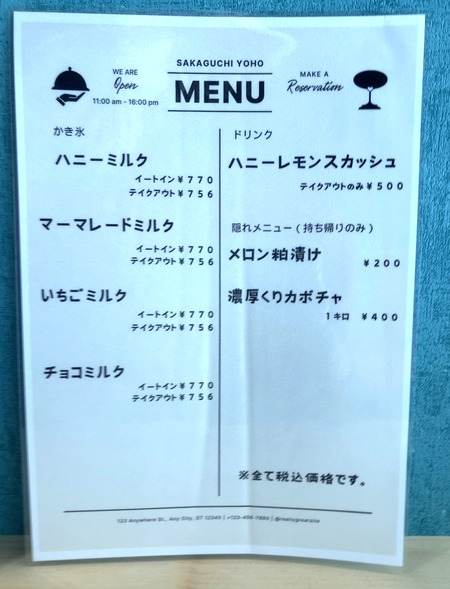 SAKAGUCHI YOHO
WE ARE
Open
11:00 am - 16:00 pm
MENU
MAKE A
Reservation
かき氷
ハニーミルク
イートイン¥770
テイクアウト¥756
マーマレードミルク
イートイン¥770
テイクアウト¥756
いちごミルク
イートイン¥770
テイクアウト¥756
チョコミルク
イートイン¥770
テイクアウト¥756
ドリンク
ハニーレモンスカッシュ
テイクアウトのみ¥500
隠れメニュー(持ち帰りのみ)
メロン粕漬け
¥200
濃厚くりカボチャ
1キロ ¥400
※全て税込価格です。
123 Anywhere St., Any City, ST 12345 | +123-456-7890 | @reallygreatsite